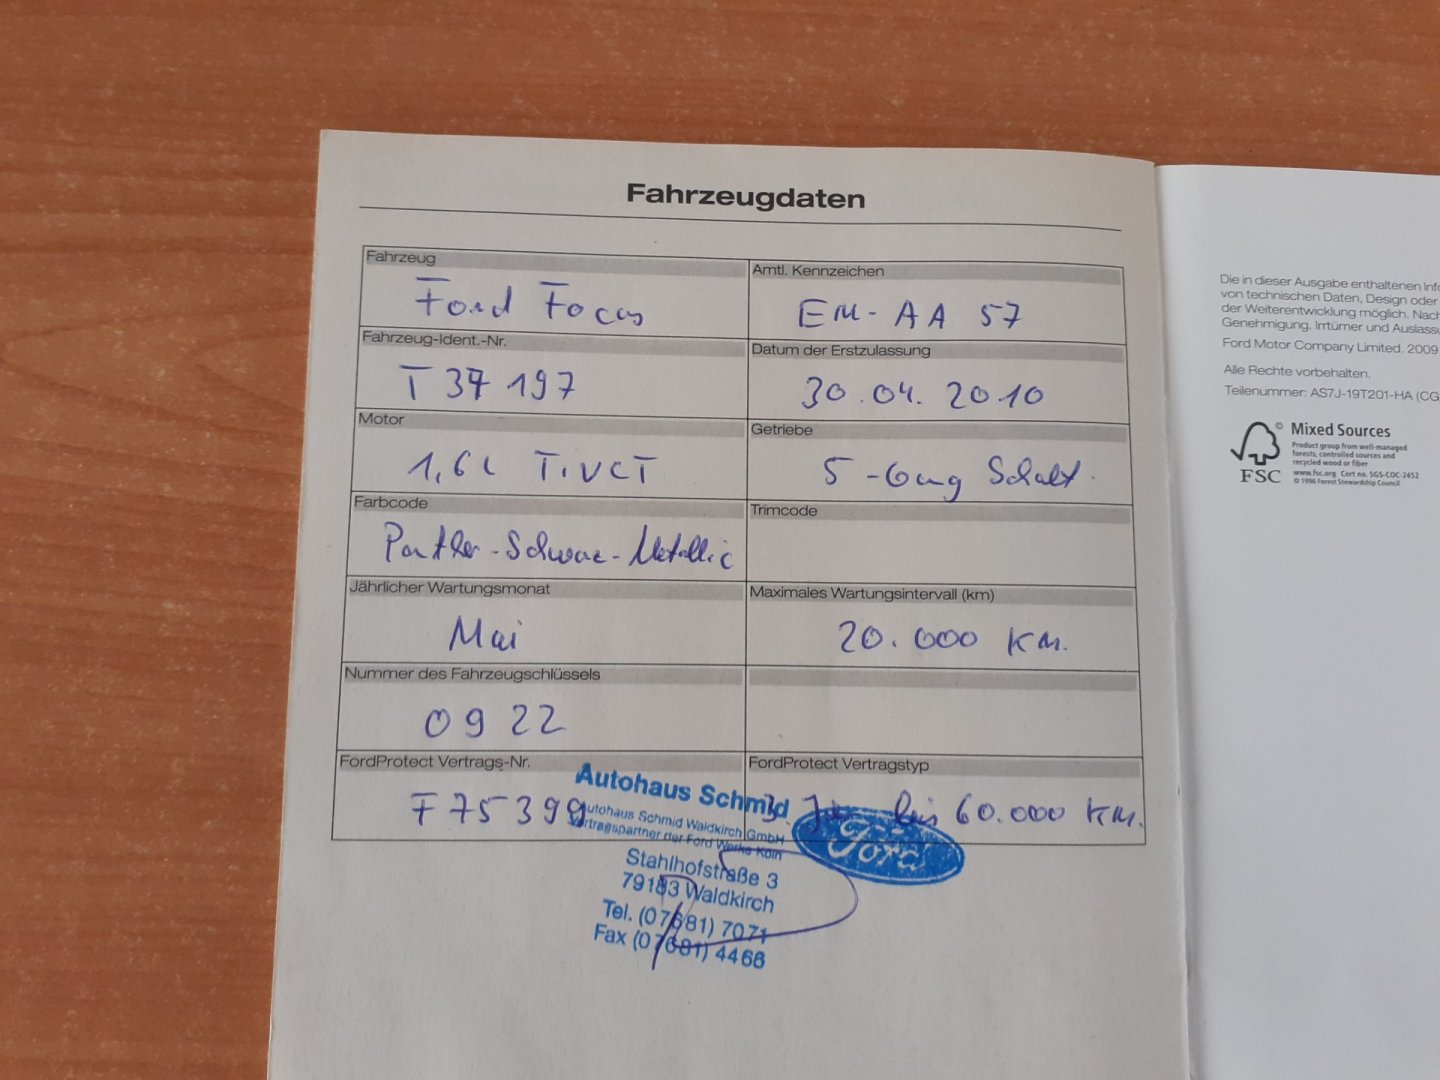 Fahrzeugdaten
Fahrzeug
Ford Focus
Amtl. Kennzeichen
EM-AA 57
Fahrzeug-Ident.-Nr.
T 37 197
Datum der Erstzulassung
30.04.2010
Motor
1,6 L Ti.VCT
Getriebe
5-Gang Schalt.
Farbcode
Panther-Schwarz-Metallic
Trimcode
Jährlicher Wartungsmonat
Mai
Maximales Wartungsintervall (km)
20.000 KM.
Nummer des Fahrzeugschlüssels
0922
FordProtect Vertrags-Nr.
F75399
FordProtect Vertragstyp
3. bis 60.000 KM.
Autohaus Schmid
Autohaus Schmid Waldkirch GmbH
Vertragspartner der Ford Werke Köln
Stahlhofstraße 3
79183 Waldkirch
Tel. (07681) 7071
Fax (07681) 4466
Ford
Die in dieser Ausgabe enthaltenen
von technischen Daten, Design oder
der Weiterentwicklung möglich.
Genehmigung. Irrtümer und
Ford Motor Company Limited. 2009
Alle Rechte vorbehalten.
Teilenummer: AS7J-19T201-HA (CG
FSC
Mixed Sources
Product group from well-managed
forests, controlled sources and
recycled wood or fiber
www.fsc.org Cert no. SGS-COC-2452
© 1996 Forest Stewardship Council